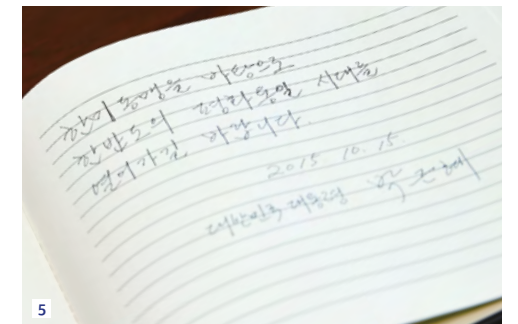 한미동맹을 바탕으로
한반도의 평화통일 시대를
열어가길 바랍니다.
2015. 10. 15.
대한민국 대통령 박근혜
5